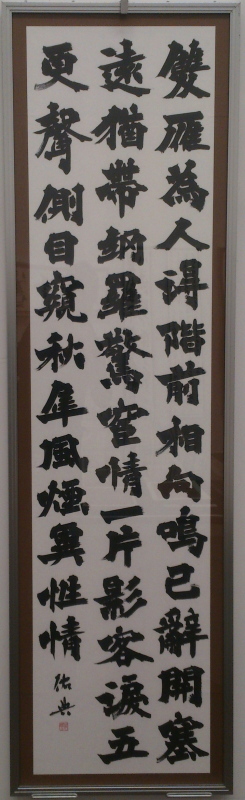 雙雁為人得階前相向鳴已辭關塞
遠猶帶網羅驚空情一片影客淚五
更聲側目窺秋隼風煙異性情
佑典